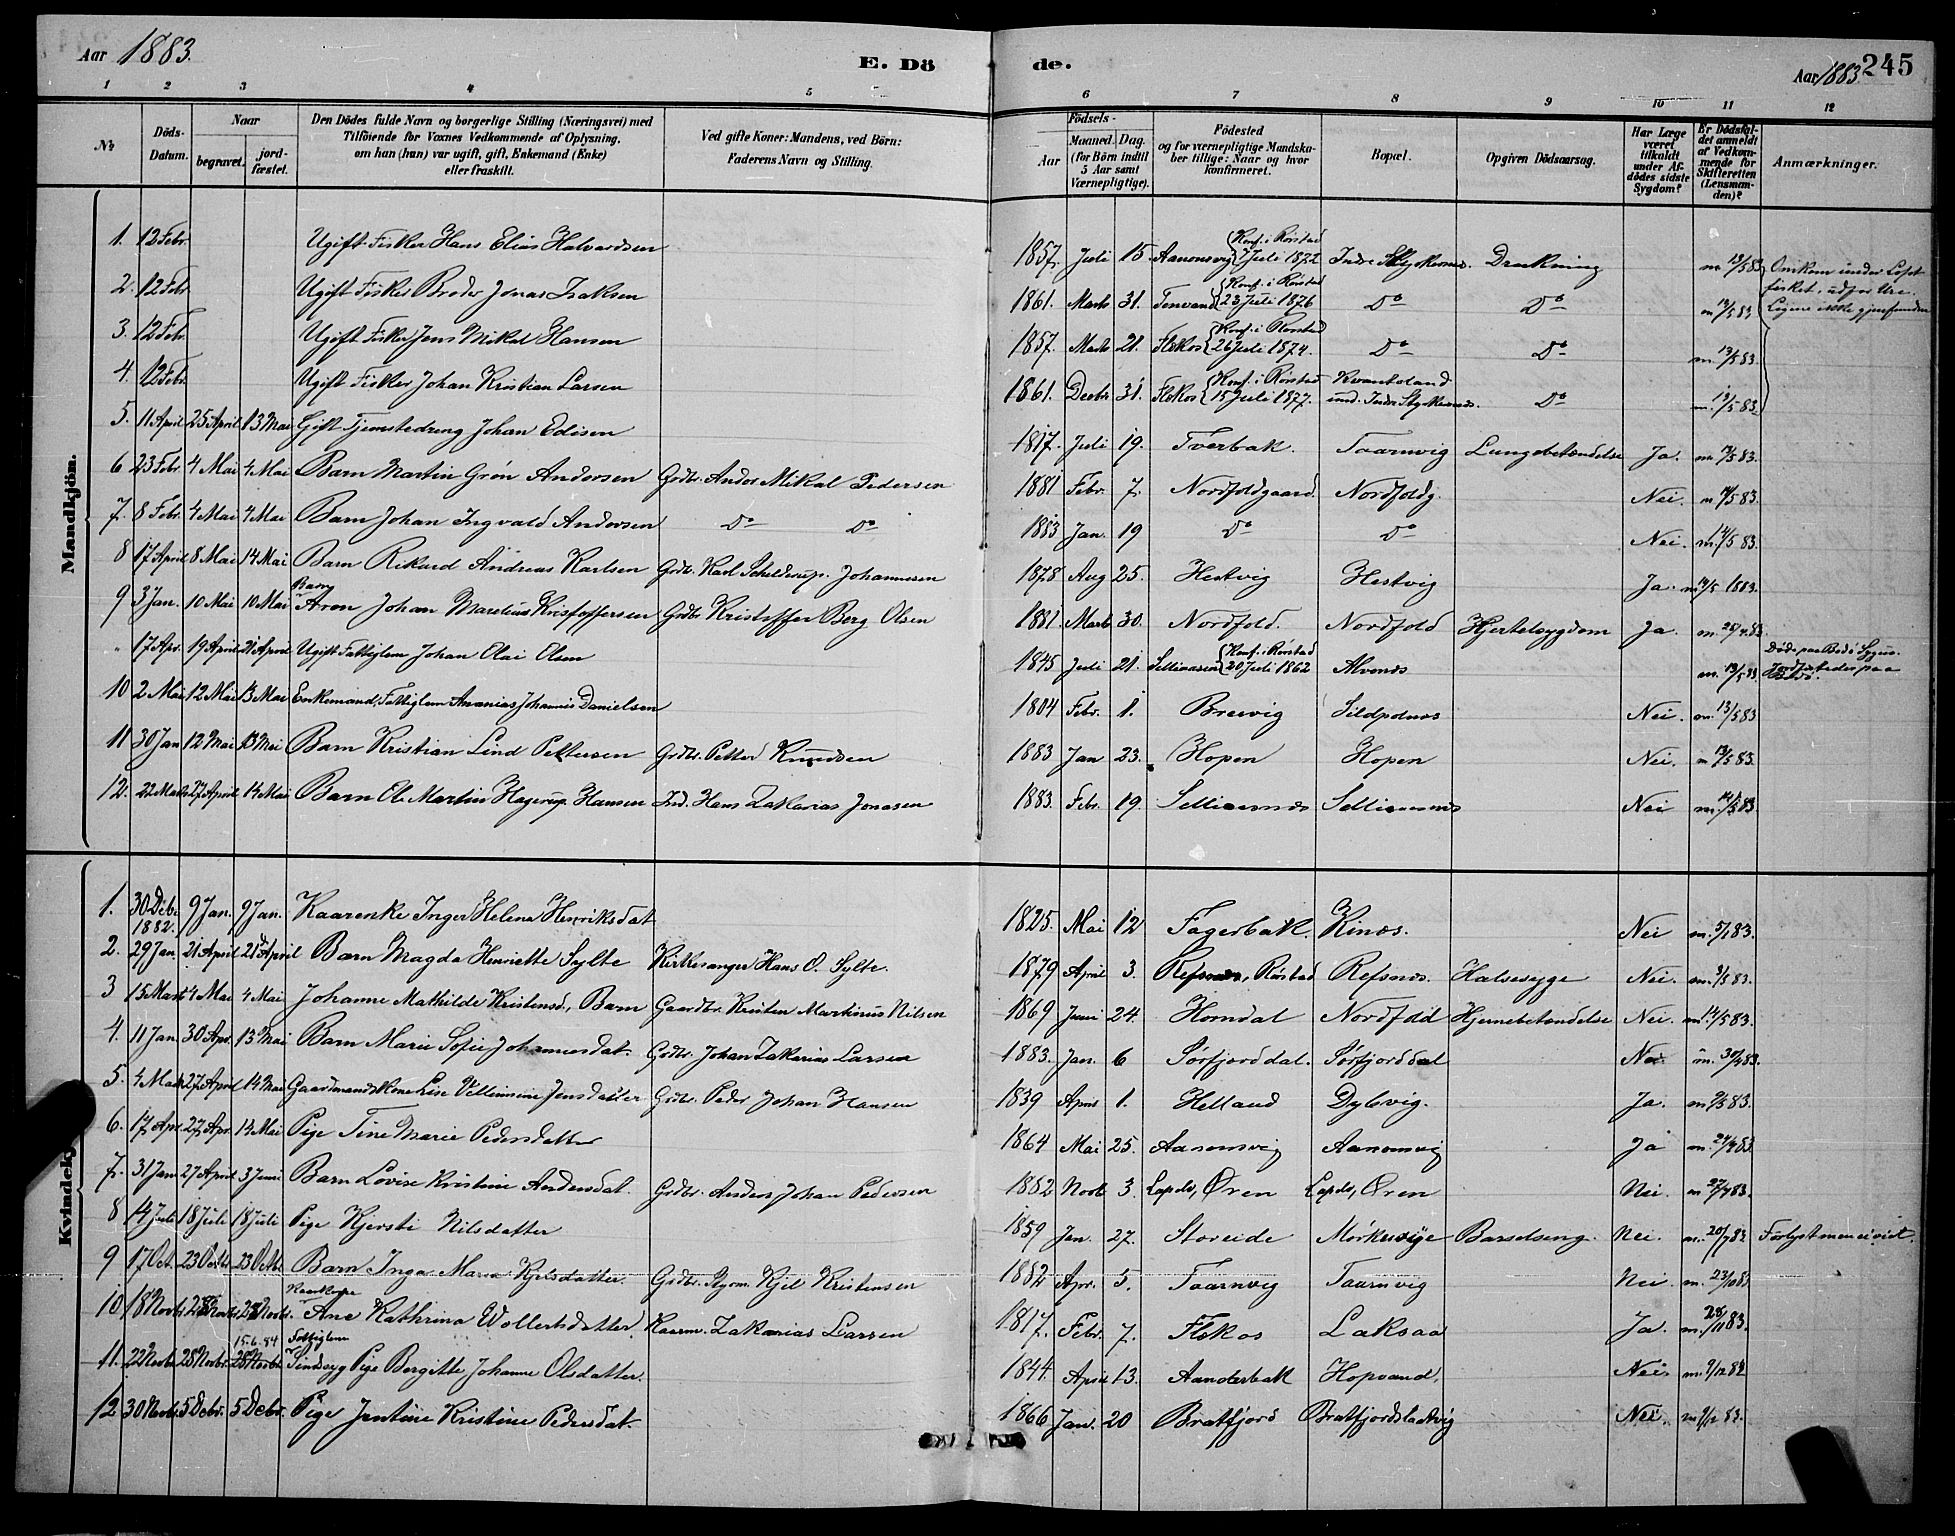 Aar 1883.
E. Dö
de.
Aar 1883.
245
1 2 3 4 5 6 7 8 9 10 11 12
№
Döds-Datum.
Naar
begravet.
jord-fæstet.
Den Dödes fulde Navn og borgerlige Stilling (Næringsvei) med
Tilföiende for Voxnes Vedkommende af Oplysning,
om han (hun) var ugift, gift, Enkemand (Enke)
eller fraskilt.
Ved gifte Koner: Mandens, ved Börn:
Faderens Navn og Stilling.
Födsels-
Aar
Maaned. Dag.
(for Börn indtil
5 Aar samt
Værnepligtige).
Födested
og for værnepligtige Mandska-
ber tillige: Naar og hvor
konfirmeret.
Bopæl.
Opgiven Dödsaarsag.
Har Læge
været
tilkaldt
under Af-
dödes sidste
Sygdom?
Er Dödsfal-
det anmeldt
af Vedkom-
mende for
Skifteretten
(Lensman-
den)?
Anmærkninger.
Mandkjön.
1. 12 Febr. Ugift Fisker Hans Elias Halvardsen 1857. Juli 15. Aanonsvig {Konf. i Rørstad 7 Juli 1872 Indre Drukning m 13/5 83 Omkom under Lofot
2. 12 Febr. Ugift Fisker Broder Jonas Isaksen 1861. Marts 31. {Konf. i Rørstad 23 Juli 1876 Do Do m 13/5 83 fisket, udfor Ure. Ligene ikke gjenfundne
3. 12 Febr. Ugift Fisker Jens Mikal Hansen 1857. Marts 21. Flekos {Konf. i Rørstad 26 Juli 1874. Do Do m. 13/5 83.
4. 12 Febr. Ugift Fisker Johan Kristian Larsen 1861. Decbr 31. Flekos {Konf. i Rørstad 15 Juli 1877. und. Indre Do m. 13/5 83.
5. 11 April 25 April 13 Mai Gift Johan Edisen 1817. Juli 19. Tverbak. Taarnvig Lungebetændelse Ja. m. 83.
6 23 Febr. 4 Mai 4 Mai Barn Martin Grøn Andersen Grdbr. Anders Mikal Pedersen 1881 Febr. 7. Nordfoldgaard. Nordfoldg. Nei. m 83.
7. 8 Febr. 4 Mai 4 Mai Barn Johan Ingvald Andersen Do Do 1883 Jan. 19 Do Do Nei. m. 14/5 83.
8 17 April 8 Mai 14 Mai Barn Rikard Andreas Karlsen Grdbr. Karl Schelderup. Johannesen 1878 Aug 25. Hestvig Hestvig Ja. m 14/5 1883.
9 3 Jan. 10 Mai 10 Mai Barn Aron Johan Marelius Kristoffersen Grdbr Kristoffer Berg Olsen 1881. Marts 30. Nordfold. Nordfold Hjertesygdom Ja m. 83.
" 17 Apr. 19 April 21 April Ugift Fattiglem Johan Olai Olsen 1845 Juli 21. {Konf. i Rørstad 20 Juli 1862 Alvenes m. 13/5 83 Døde paa Bodø Sygeh. Jordfæstedes paa Bodø.
10 2 Mai 12 Mai 13 Mai Enkemand, Fattiglem Ananias Johannes Danielsen 1804 Febr. 1. Brevig Sildpolnes Nei. m. 13/5 83
11 30 Jan 12 Mai 13 Mai Barn Kristian Lind Pettersen Grdbr. Petter Knudsen 1883 Jan 23. Hopen Hopen Nei. m 13/5 83.
12. 22 Marts 27 April 14 Mai Barn Ole Martin Hagerup Hansen Ind. Hans Zakarias Jonasen 1883. Febr. 19. Nei m. 14/5 83.
Kvindekj
1. 30 Debr 1882. 9 Jan. 9 Jan. Kaarenke Inger Helena Henriksdat 1825. Mai 12 Fagerbak. Kines. Nei m. 5/1 83.
2. 29 Jan. 21 April 21 April Barn Magda Henriette Sylte Kirkesanger Hans O. Sylte. 1879 April 3. Refsnes, Rørstad Refsnes. Halssyge Nei. m. 83.
3 15 Marts 4 Mai 4 Mai Johanne Mathilde Kristensd., Barn Gaardbr. Kristen Martinus Nilsen 1869 Juni 24. Horndal Nordfold Hjernebetændelse Nei. m. 14/5 83.
4. 11 Jan. 30 Apr. 13 Mai Barn Marie Sofie Johannesdat. Grdbr. Johan Zakarias Larsen 1883. Jan. 6 Sørfjorddal. Sørfjorddal Nei m. 30/4 83.
5. 4 Marts 27 April 14 Mai Gaardmandskone Lise Vellemine Jensdatter Grdbr. Peder Johan Hansen 1839 April 1. Helland Dybvig. Ja. m 83.
6. 17 Apr. 27 Apr. 14 Mai Pige Tine Marie Pedersdatter 1864 Mai 25. Aanonsvig Aanonsvig Ja m. 83
7. 31 Jan 27 April 3 Juni Barn Lovise Kristine Andersdat. Grdbr. Anders Johan Pedersen 1882 Novb 3. Øren Øren Nei. m 83.
8 14 Juli 18 Juli 18 Juli Pige Kjersti Nilsdatter 1859 Jan. 27. Storeide Barselseng. Nei. m. 20/7 83. Forlyst men ei viet.
9 17 Oct. 23 Octb 23 Octb Barn Inga Marie Kjelsdatter. Grdbr. Kjel Kristensen 1882 Apr. 5. Taarnvig Taarnvig Nei. m. 23/10 83
10 18 Novbr. 28 Novbr. 28 Novbr. Kaarkone Ane Kathrina Wollertsdatter. Kaarm. Zakarias Larsen 1817. Febr. 7. Flekos Laksaa Ja. m. 28/11 83.
11. 22 Novbr. 28 Novbr. 15.6.84 28 Novbr Fattiglem Sindssyg Pige Bergitte Johanne Olsdatter. 1844. April 13. Aanderbak Hopvand. Nei. m. 9/12 83
12 30 Novbr. 5 Debr. 5 Debr. Pige Jentine Kristine Pedersdat. 1866 Jan. 20 Bratfjord Nei. m 9/12 83.